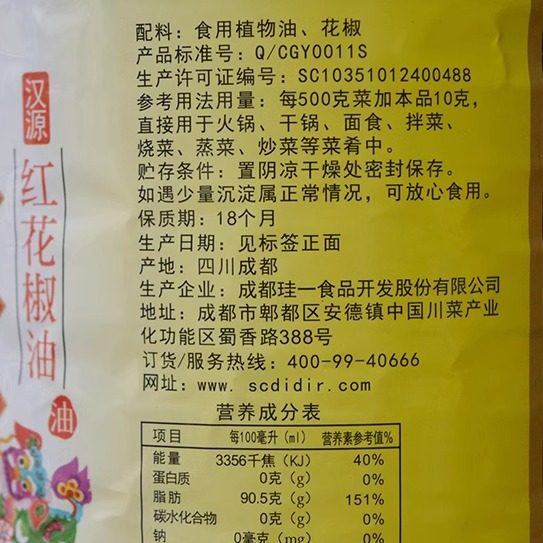 汉源
红花椒油
油
配料：食用植物油、花椒
产品标准号：Q/CGY0011S
生产许可证编号：SC10351012400488
参考用法用量：每500克菜加本品10克，
直接用于火锅、干锅、面食、拌菜、
烧菜、蒸菜、炒菜等菜肴中。
贮存条件：置阴凉干燥处密封保存。
如遇少量沉淀属正常情况，可放心食用。
保质期：18个月
生产日期：见标签正面
产地：四川成都
生产企业：成都珪一食品开发股份有限公司
地址：成都市郫都区安德镇中国川菜产业
化功能区蜀香路388号
订货/服务热线：400-99-40666
网址：www.scdidir.com
营养成分表
项目 每100毫升（ml） 营养素参考值%
能量 3356千焦（KJ） 40%
蛋白质 0克（g） 0%
脂肪 90.5克（g） 151%
碳水化合物 0克（g） 0%
钠 0毫克（mg） 0%